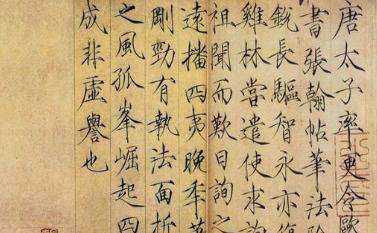 唐太子率更令歐
書張翰帖筆法險
銳長驅智永亦復
雞林嘗遣使求詢
祖聞而歎曰詢之
遠播四夷晚秊
剛勁有執法面折
之風孤峯崛起四
成非虛譽也